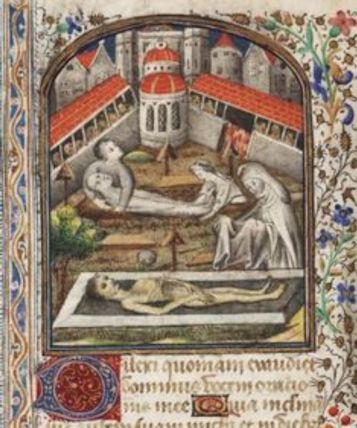 Dilexi quoniam exaudiet
Dominus vocem oratio
nis mee Quia inclina